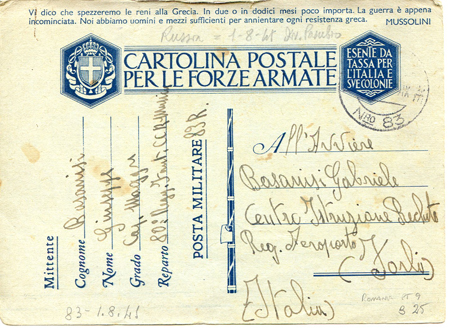 Vi dico che spezzeremo le reni alla Grecia. In due o in dodici mesi poco importa. La guerra è appena
incominciata. Noi abbiamo uomini e mezzi sufficienti per annientare ogni resistenza greca. MUSSOLINI
Russia = 1-8-41
CARTOLINA POSTALE
PER LE FORZE ARMATE
ESENTE DA
TASSA PER
L'ITALIA E
SVE COLONIE
NRO 83
Mittente
Cognome Bosanisi
Nome Giuseppe
Grado Cap. Magg.
Reparto 80° Regg. Fant.
POSTA MILITARE 83 R.
All'Aviere
Bosanisi Gabriele
Centro Istruzione Reclute
Reg. Aeroporto
(Forlì)
(Italia)
83-1.8.41
B 25